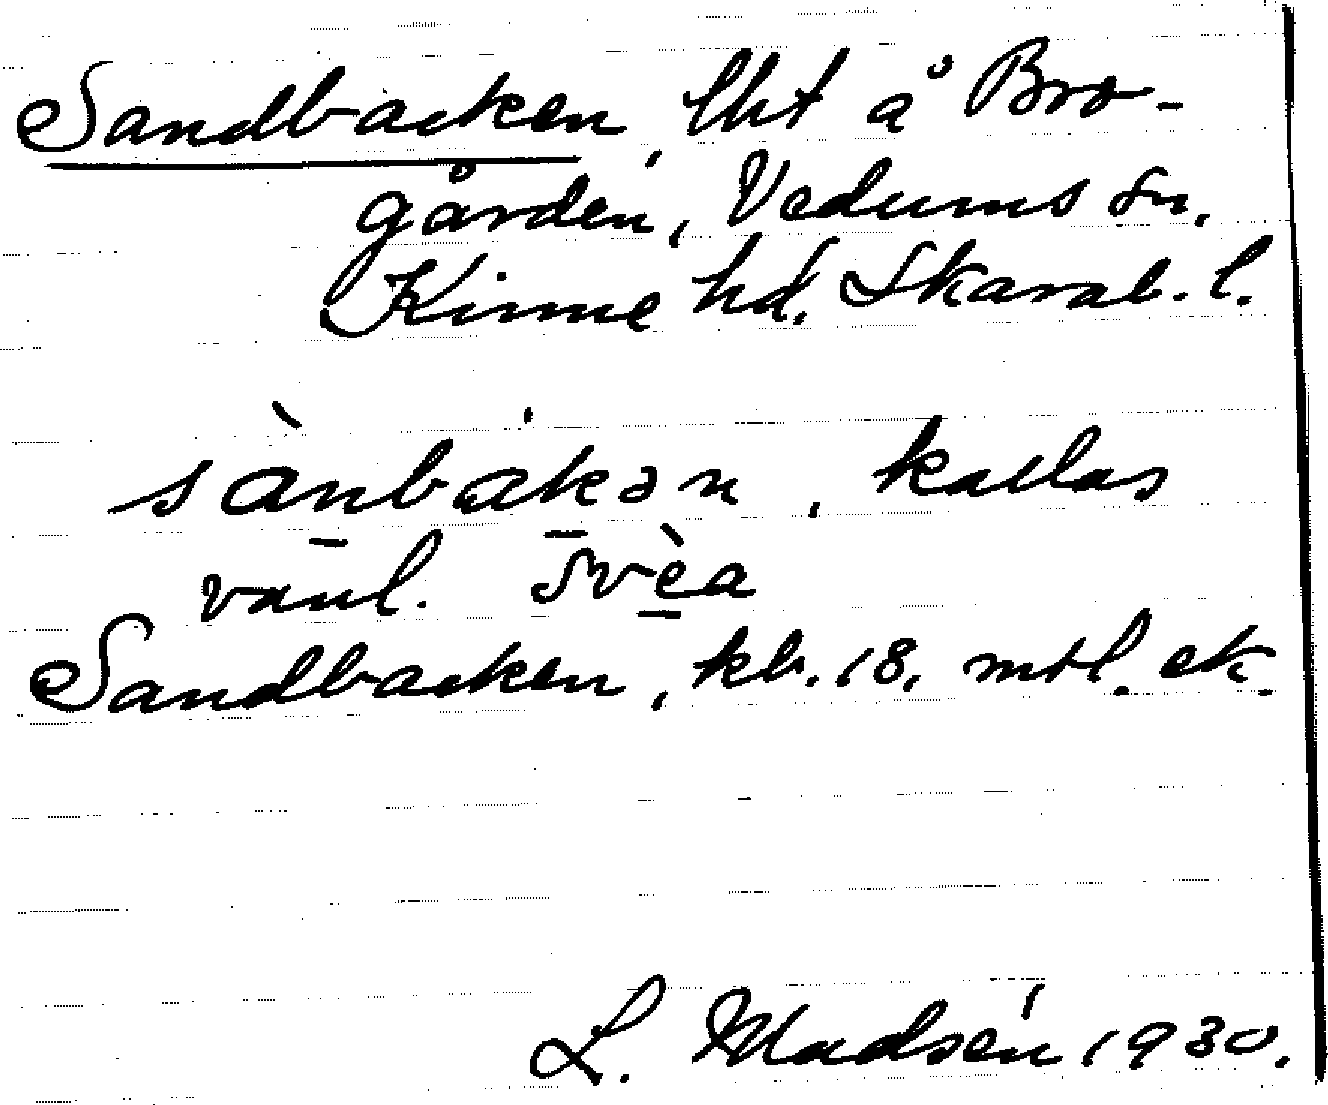 Sandbacken, lht å Bro-
gården, Vedums sn,
Kinne hd. Skarab. l.
sànbàkən, kallas
vanl. Svèa
Sandbacken, kb. 18, mtl. ek.
L. Madsén 1930.